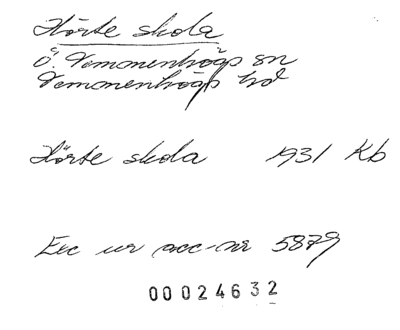 Hörte skola
Ö. Vemmenhögs sn
Vemmenhögs hd
Hörte skola 1931 Kb
Exc ur acc-nr 5879
00024632